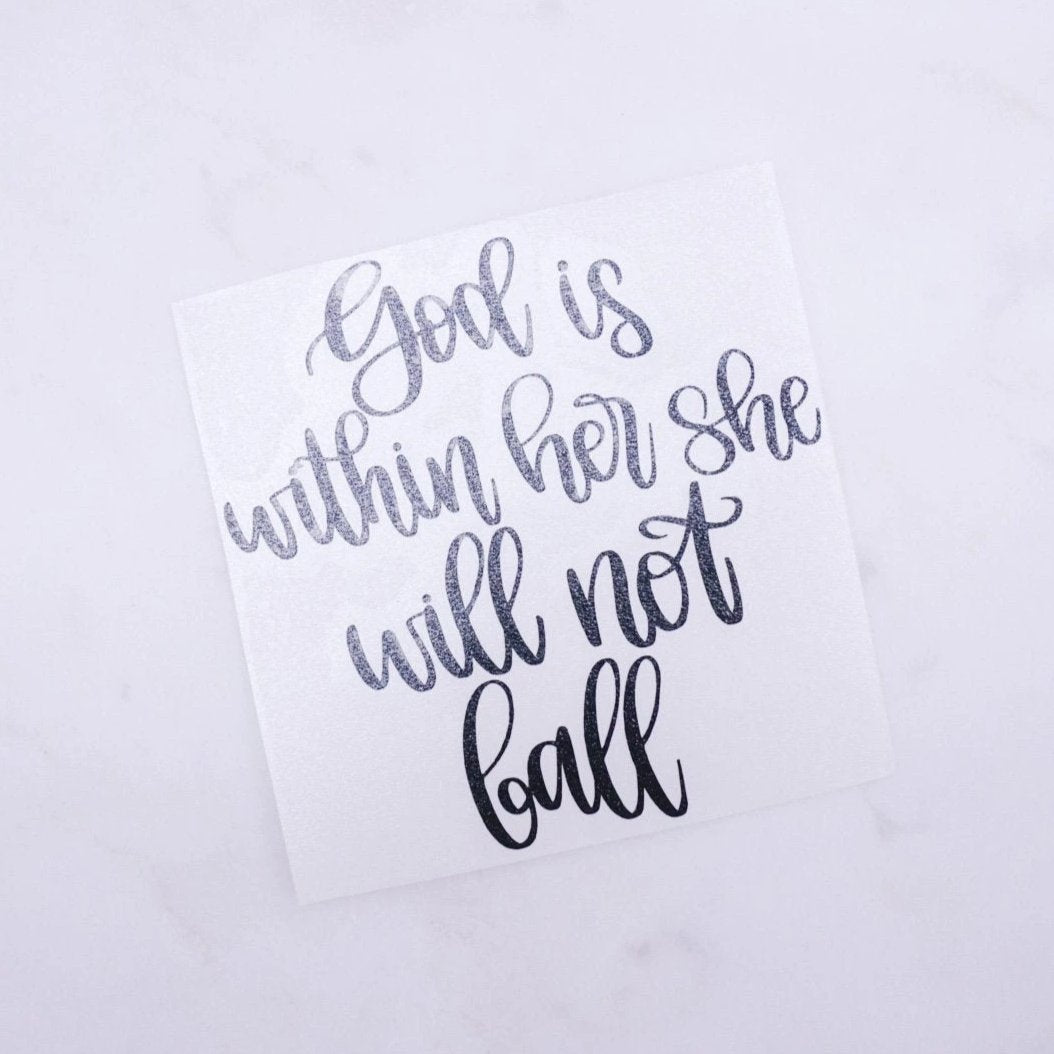 God is
within her she
will not
fall